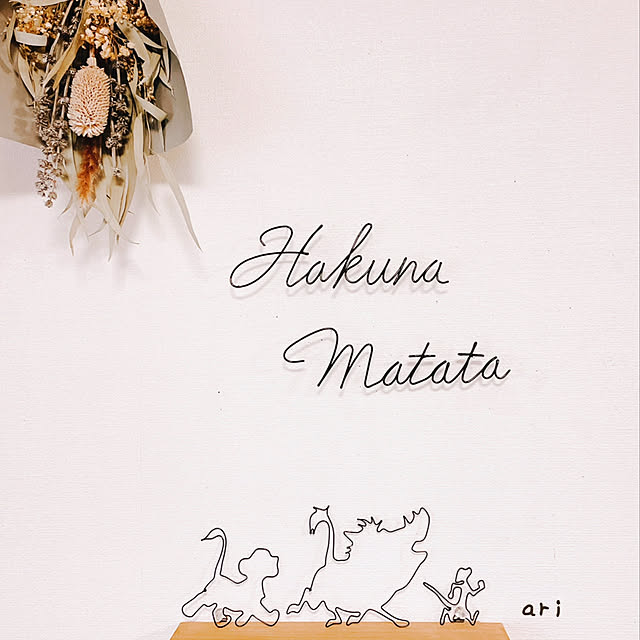 Hakuna
Matata
ari